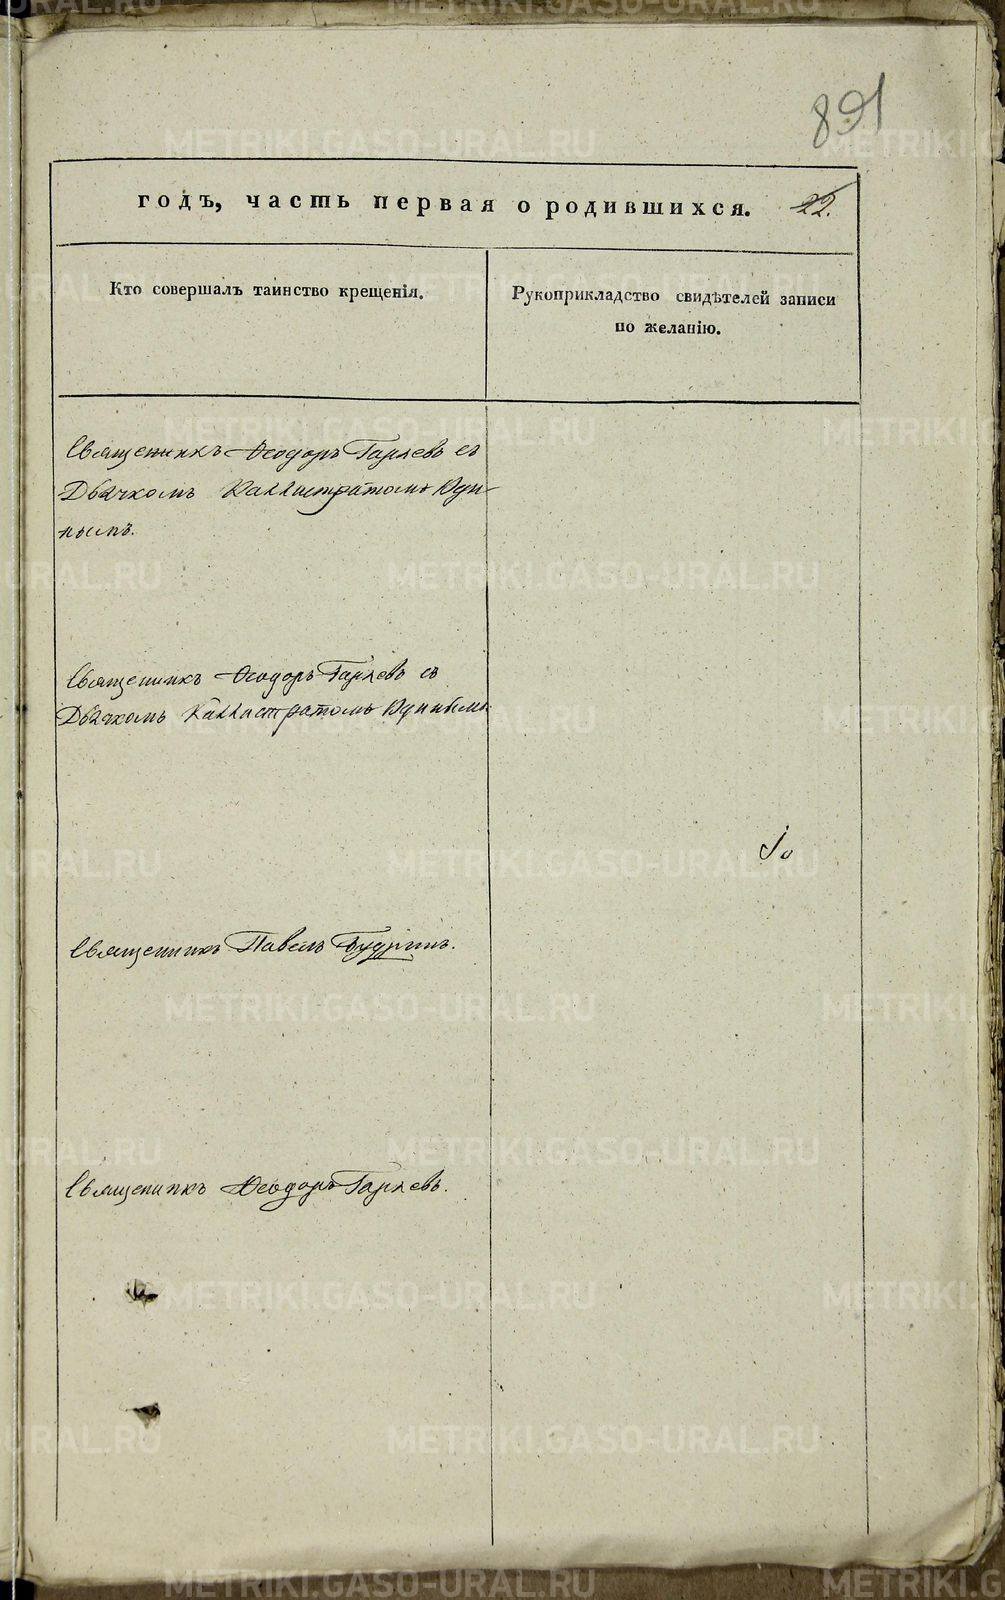 891
годъ, часть первая о родившихся. 22.
Кто совершалъ таинство крещенія.
Рукоприкладство свидѣтелей записи
по желанію.
Священникъ Ѳеодоръ Гаряевъ съ
Дьячкомъ Каллистратомъ Юди-
нымъ.
Священникъ Ѳеодоръ Гаряевъ съ
Дьячкомъ Каллистратомъ Юдинымъ
Священникъ Павелъ Будринъ.
Священникъ Ѳеодоръ Гаряевъ.
METRIKI.GASO-URAL.RU